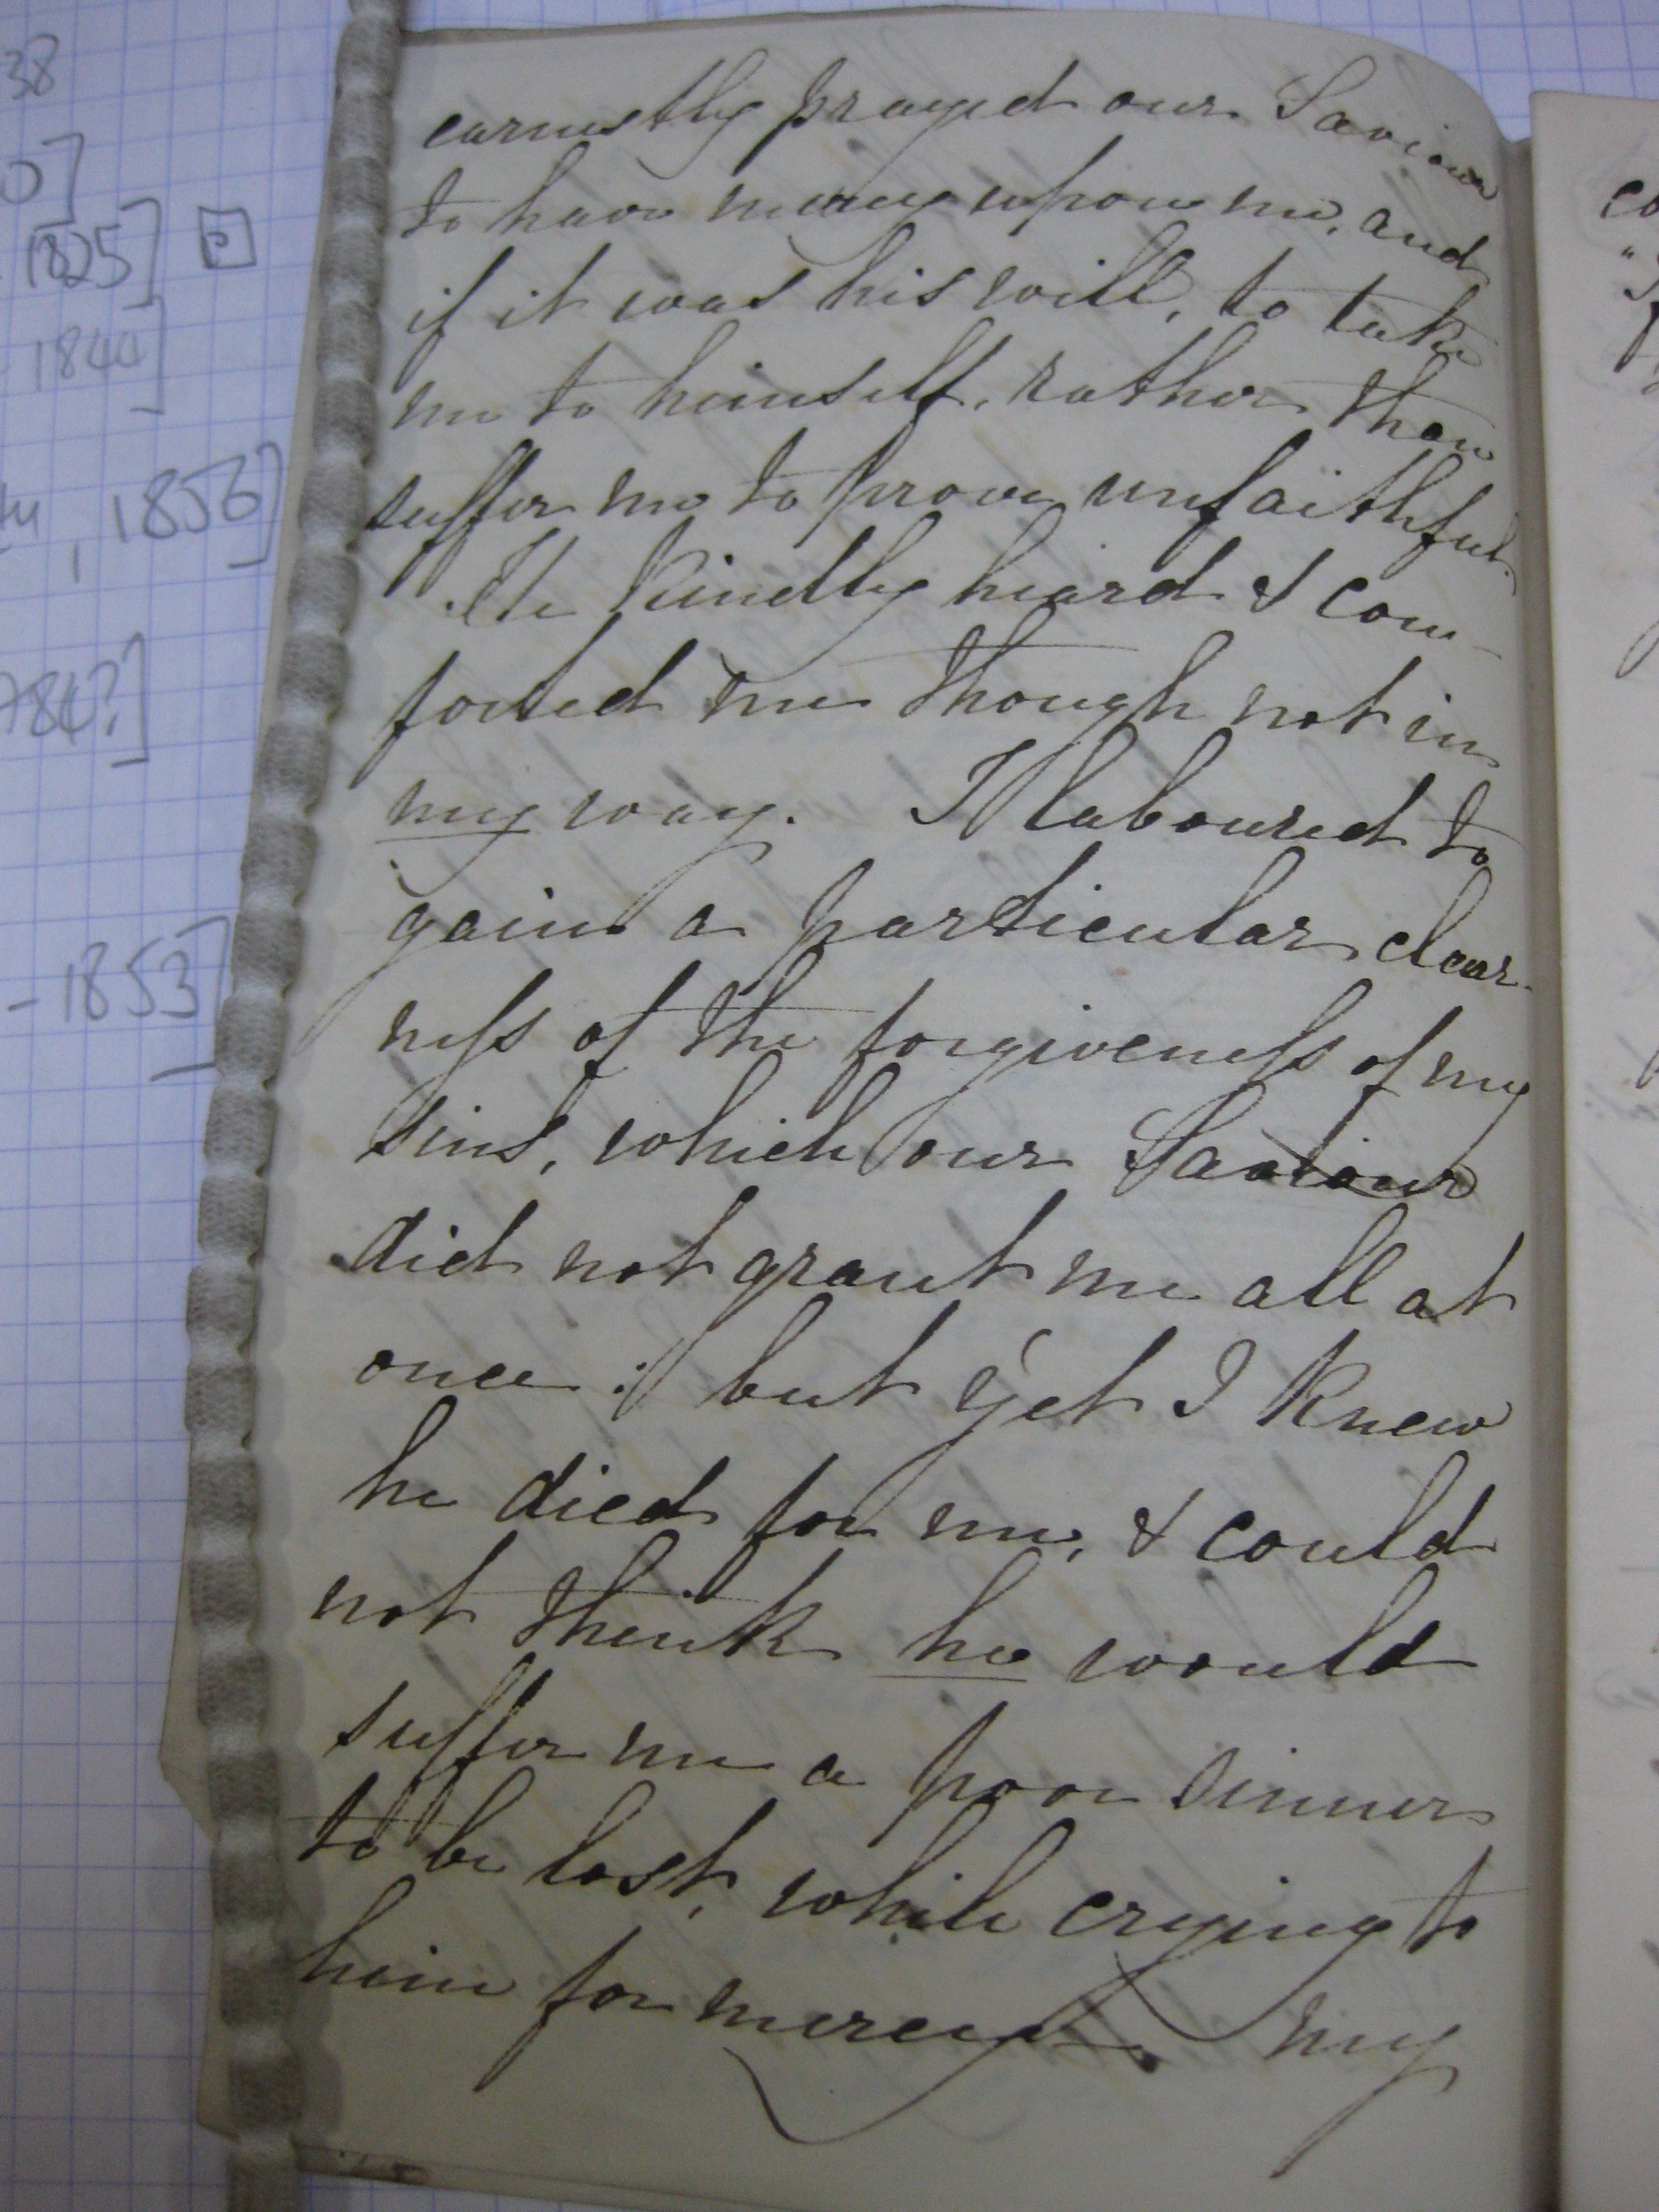 38
0]
1825] P
1844]
, 1856]
784?]
-1853]
earnestly prayed our Saviour
to have mercy upon me, and
if it was his will, to take
me to himself, rather than
suffer me to prove unfaithful.
He kindly heard & com-
forted me though not in
my way. I laboured to
gain a particular clear-
ness of the forgiveness of my
sins, which our Saviour
did not grant me all at
once: but yet I knew
he died for me, & could
not think he would
suffer me a poor sinner
to be lost, while crying to
him for mercy. My